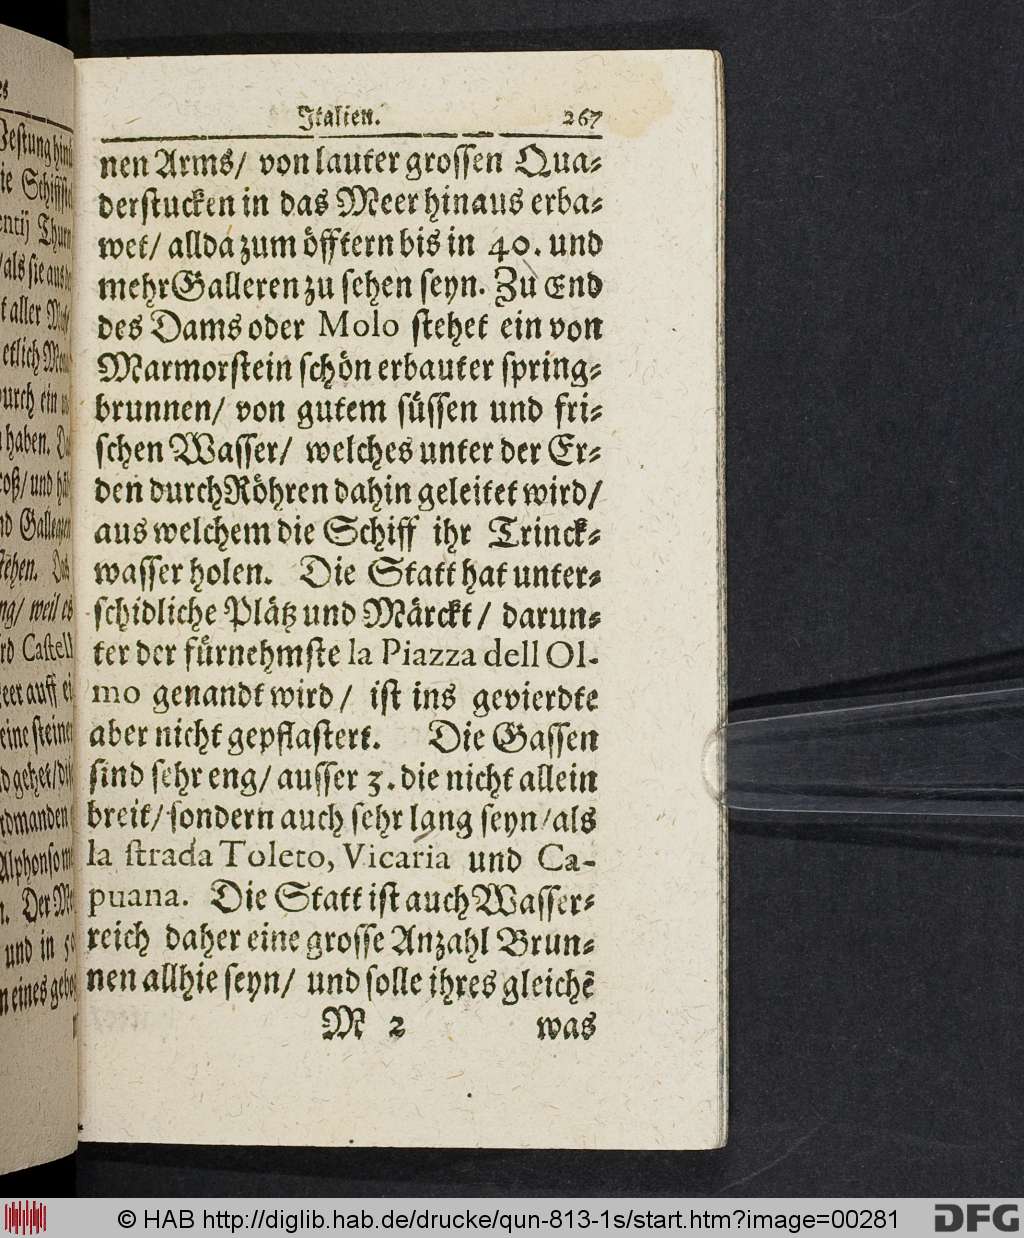 Italien. 267
nen Arms/ von lauter grossen Qua-
derstucken in das Meer hinaus erba-
wet/ allda zum öfftern bis in 40. und
mehr Galleren zu sehen seyn. Zu End
des Dams oder Molo stehet ein von
Marmorstein schön erbauter spring-
brunnen/ von gutem süssen und fri-
schen Wasser/ welches unter der Er-
den durch Röhren dahin geleitet wird/
aus welchem die Schiff ihr Trinck-
wasser holen. Die Statt hat unter-
schidliche Plätz und Märckt/ darun-
ter der fürnehmste la Piazza dell Ol-
mo genandt wird/ ist ins gevierdte
aber nicht gepflastert. Die Gassen
sind sehr eng/ ausser 3. die nicht allein
breit/ sondern auch sehr lang seyn/ als
la strada Toleto, Vicaria und Ca-
puana. Die Statt ist auch Wasser-
reich daher eine grosse Anzahl Brun-
nen allhie seyn/ und solle ihres gleichẽ
M 2 was
© HAB http://diglib.hab.de/drucke/qun-813-1s/start.htm?image=00281
DFG